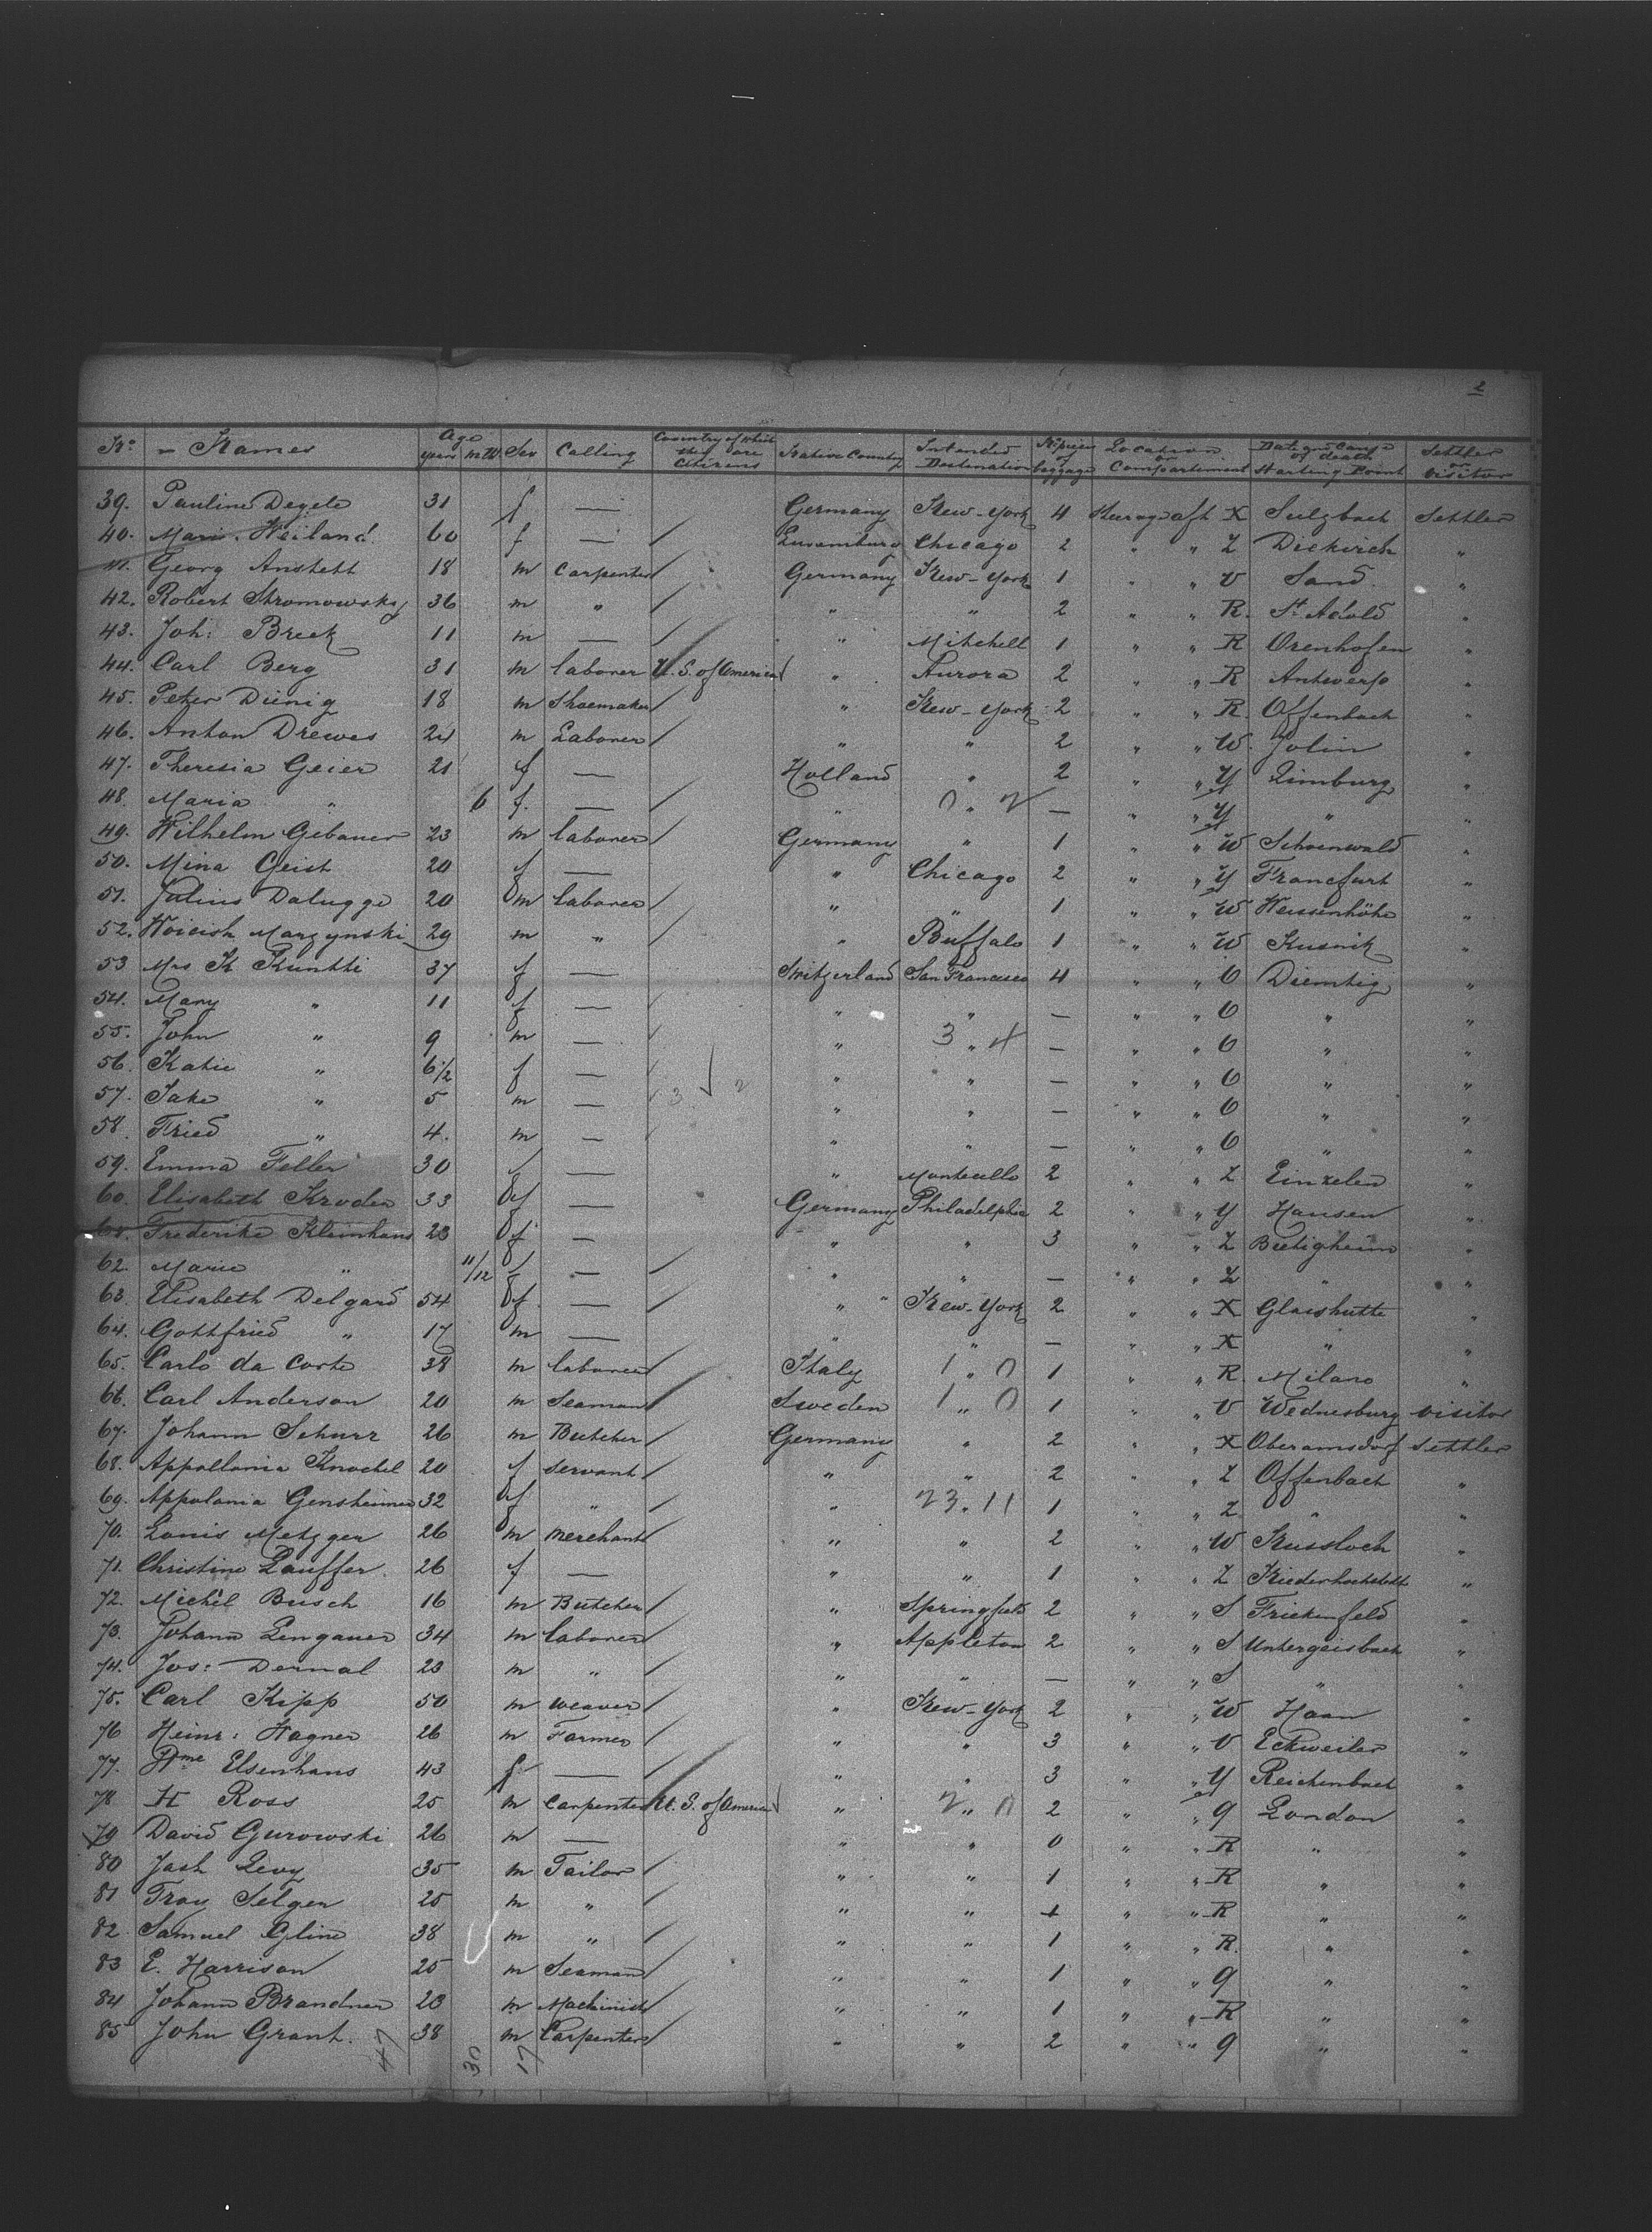 2
No. Names Age years mth Sex Calling Country of which they are Citizens Native Country Intended Destination Nr pieces of baggage Location or Compartement Date and Cause of death Starting Point Settler or Visitor
39. Pauline Degele 31 f — Germany New-York 4 Steerage aft X Sulzbach Settler
40. Marie Weiland 60 f — Luxemburg Chicago 2 " " Z Diekirch "
41. Georg Anstett 18 m Carpenter Germany New-York 1 " " V Sand "
42. Robert Stromowsky 36 m " " " 2 " " R. St. Adold "
43. Joh: Breck 11 m — " Mitchell 1 " " R Orenhofen "
44. Carl Berg 31 m laborer U.S. of America " Aurora 2 " " R Antwerp "
45. Peter Dünig 18 m Shoemaker " New-York 2 " " R. Offenbach "
46. Anton Drewes 24 m Laborer " " 2 " " W. Jolin "
47. Theresia Geier 21 f — Holland " 2 " " Y Limburg "
48. Maria " 6 f. — " 0 " 2 — " " Y " "
49. Wilhelm Gebauer 23 m laborer Germany " 1 " " W Schoenwald "
50. Mina Geist 20 f — " Chicago 2 " " Y Francfurt "
51. Julius Dalugge 20 m laborer " " 1 " " W Weissenhöhe "
52. Woicich Marzynski 29 m " " Buffalo 1 " " W Kusnik "
53 Mrs K Kuntti 37 f — Switzerland San Francisco 4 " " O Diemtig "
54. Mary " 11 f — " " — " " O " "
55. John " 9 m — " 3 " 4 — " " O " "
56. Katie " 6 1/2 f — " " — " " O " "
57. Jake " 5 m — 3 2 " " — " " O " "
58. Fried " 4. m — " " — " " O " "
59. Emma Feller 30 f — " Monticello 2 " " Z Einzelen "
60. Elisabeth Kroder 33 f — Germany Philadelphia 2 " " Y Hausen "
61. Frederike Kleinhans 23 f — " " 3 " " Z Bietigheim "
62. Marie " 11/12 f — " " — " " Z " "
63. Elisabeth Delgard 54 f. — " " New-York 2 " " X Glashutte "
64. Gottfried " 17 m — " " — " " X " "
65. Carlo da Corte 38 m laborer Italy 1 " 0 1 " " R. Milano "
66. Carl Anderson 20 m Seaman Sweden 1 " 0 1 " " V Wednesburg visitor
67. Johann Schurr 26 m Butcher Germany " 2 " " X Oberamsdorf Settler
68. Appollonia Knochel 20 f Servant " " 2 " " Z Offenbach "
69. Appolonia Gensheimer 32 f " " 23 " 11 1 " " Z " "
70. Louis Metzger 26 m Merchant " " 2 " " W Nussloch "
71. Christine Lauffer. 26 f — " " 1 " " Z Niederhochstett "
72. Michel Busch 16 m Butcher " Springfield 2 " " S Frickenfeld "
73. Johann Lengauer 34 m laborer " Appleton 2 " " S Untergeisbach "
74. Jos: Dernal 23 m " " " — " " S " "
75. Carl Kipp 50 m weaver " New-York 2 " " W Haan "
76 Heinr: Wagner 26 m Farmer " " 3 " " V Eckweiler "
77. Mme Elsenhans 43 f — " " 3 " " Y Reichenbach "
78 H Ross 25 m Carpenter U.S. of America " 2 " 0 2 " " q London "
79 David Gurowski 26 m — " " 0 " " R " "
80 Jash Levy 35 m Tailor " " 1 " " R " "
81 Tray Selger 25 m " " " 1 " " R " "
82 Samuel Gline 38 m " " " 1 " " R. " "
83 E. Harrison 25 m Seaman " " 1 " " q " "
84 Johann Brandner 23 m Machinist " " 1 " " R " "
85 John Grant. 38 m Carpenter " " 2 " " q " "
47 30 17